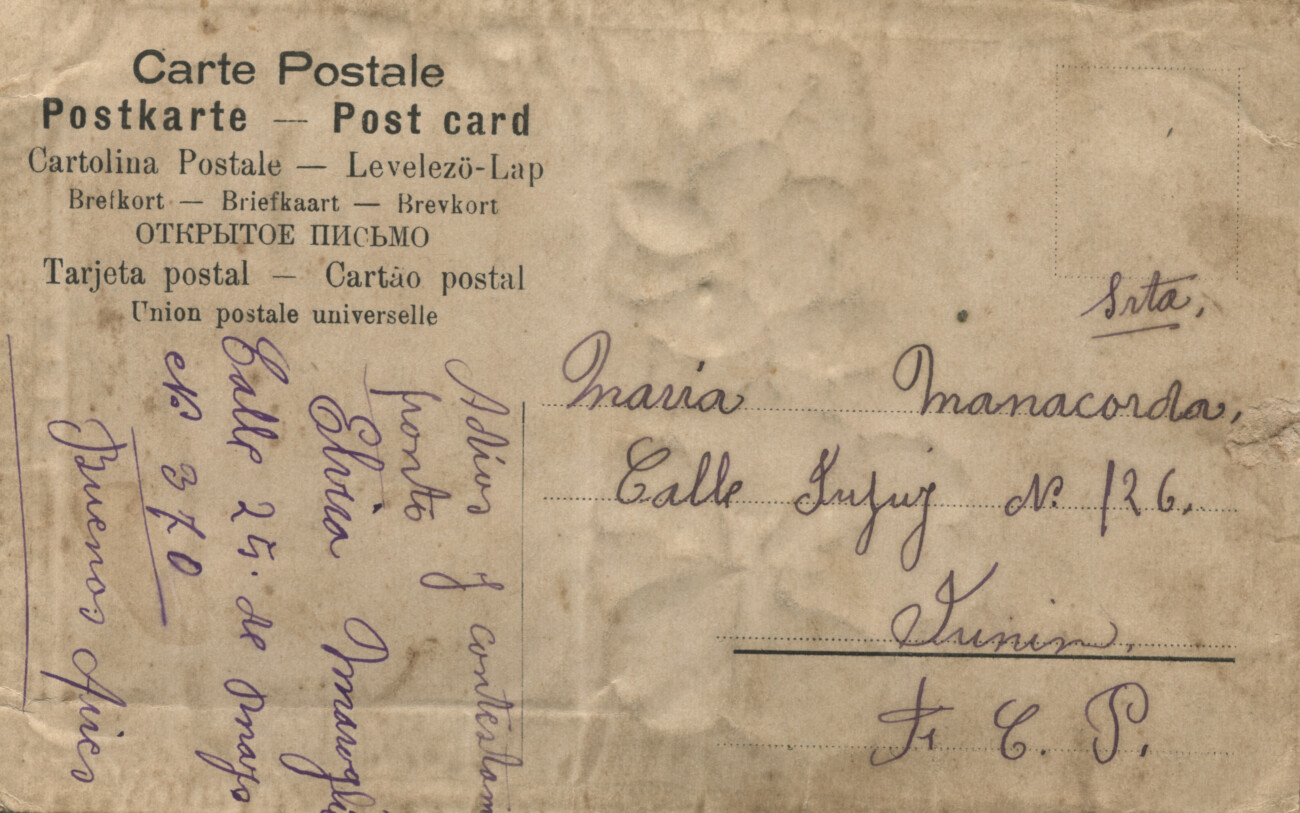 Carte Postale
Postkarte — Post card
Cartolina Postale — Levelezö-Lap
Brefkort — Briefkaart — Brevkort
ОТКРЫТОЕ ПИСЬМО
Tarjeta postal — Cartão postal
Union postale universelle
Srta.
Maria Manacorda.
Calle Jujuy No. 126.
Junin.
F. C. P.
Adios y contestame
pronto
Elvira
Calle 25. de Mayo
No 370
Buenos Aires